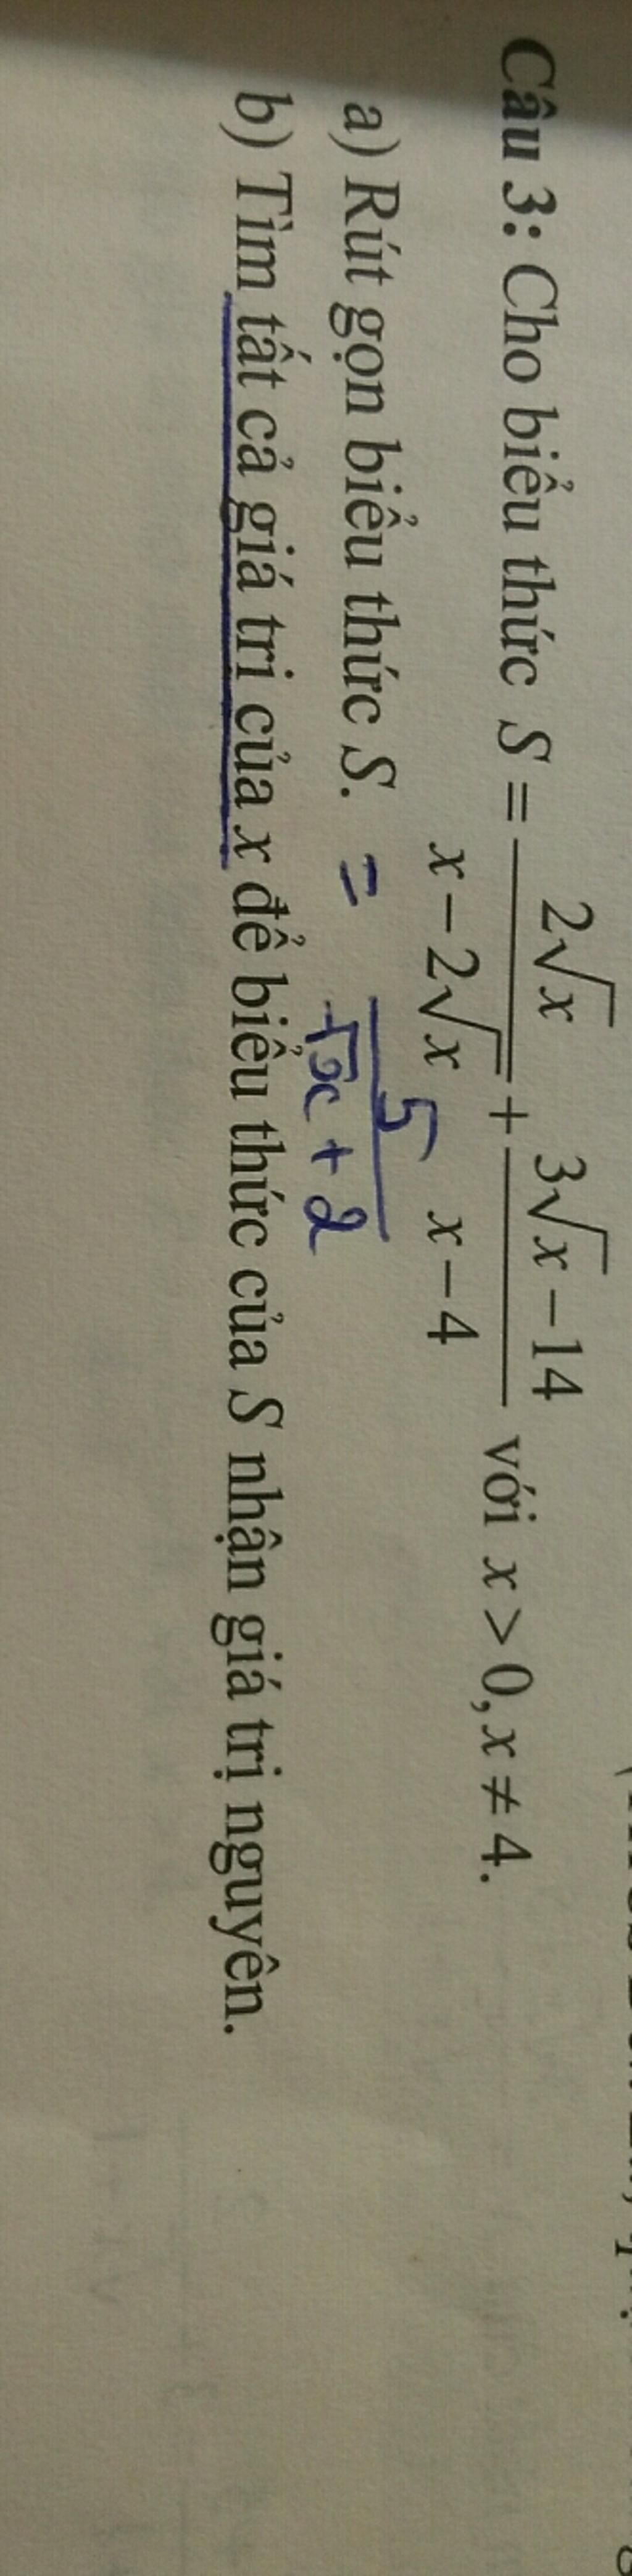 Câu 3: Cho biểu thức S = \frac{2\sqrt{x}}{x-2\sqrt{x}} + \frac{3\sqrt{x}-14}{x-4} với x > 0, x ≠ 4.
a) Rút gọn biểu thức S. = \frac{5}{\sqrt{x}+2}
b) Tìm tất cả giá trị của x để biểu thức của S nhận giá trị nguyên.